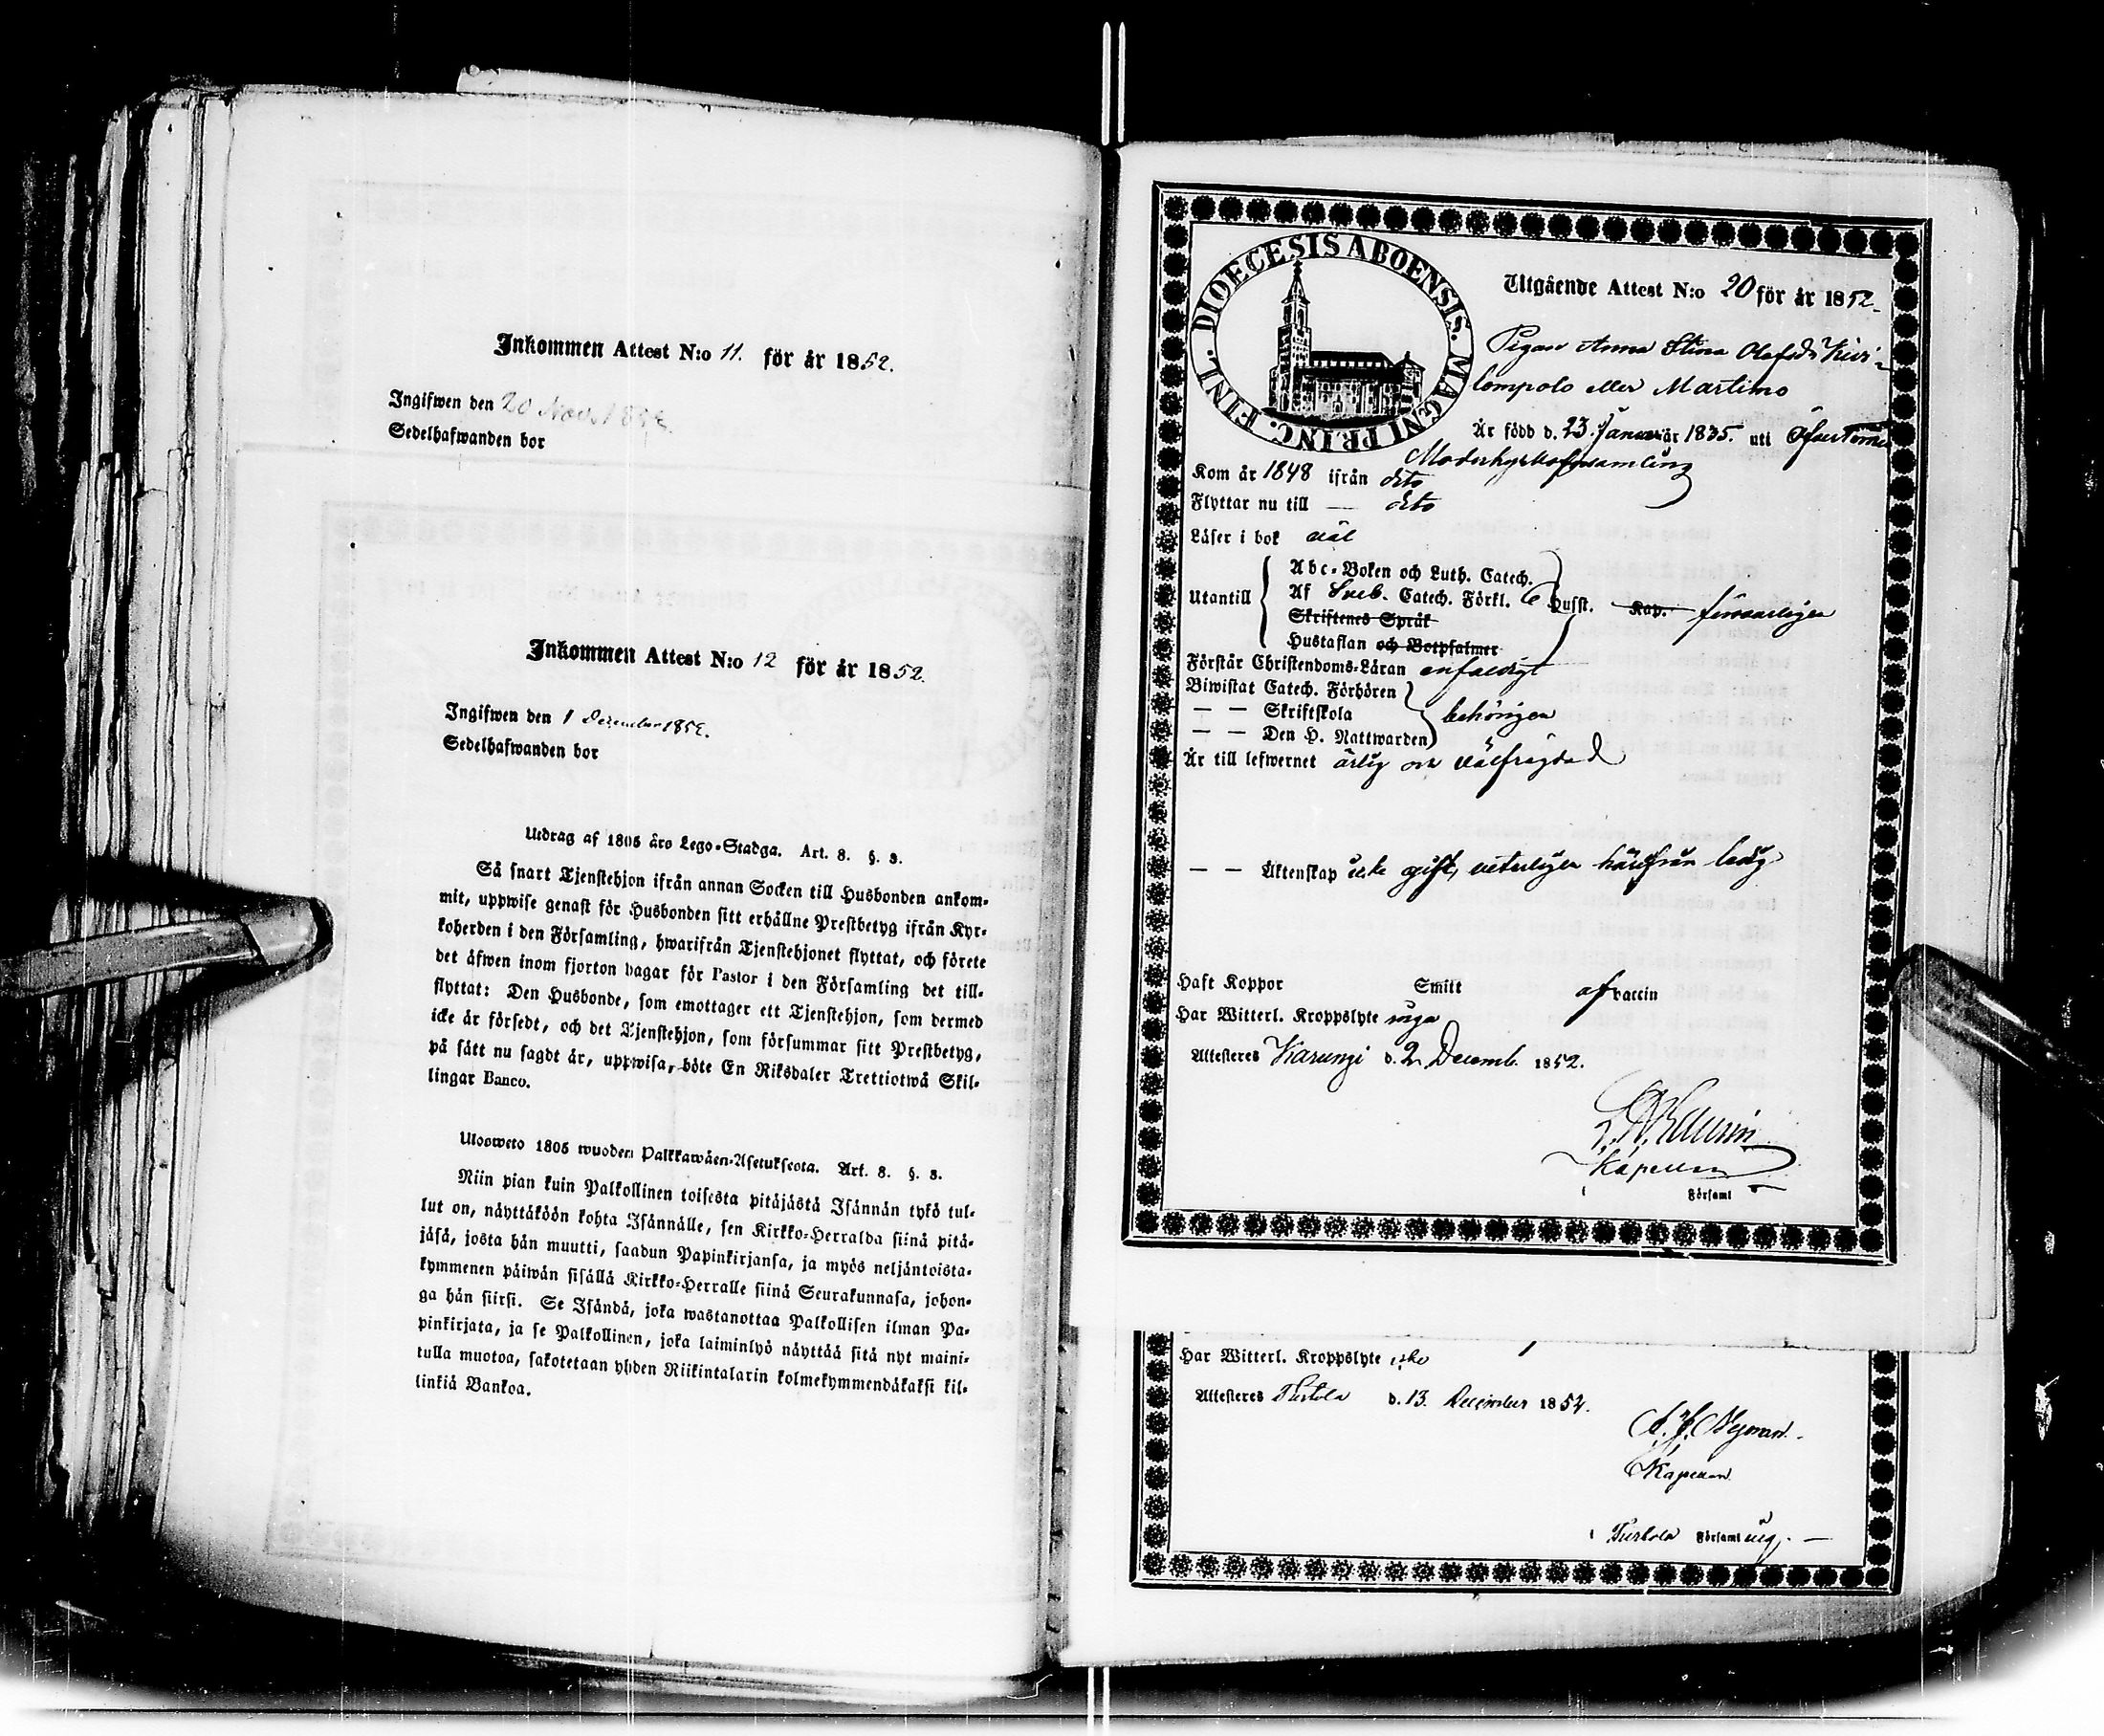 Inkommen Attest N:o 11. för år 1852.
Ingifwen den 20 Nov. 1852.
Sedelhafwanden bor
Inkommen Attest N:o 12 för år 1852.
Ingifwen den 1 December 1852.
Sedelhafwanden bor
Utdrag af 1805 års Lego-Stadga. Art. 8. §. 3.
Så snart Tjenstehjon ifrån annan Socken till Husbonden ankom-
mit, uppwise genast för Husbonden sitt erhållne Prestbetyg ifrån Kyr-
koherden i den Församling, hwarifrån Tjenstehjonet flyttat, och förete
det äfwen inom fjorton dagar för Pastor i den Församling det till-
flyttat: Den Husbonde, som emottager ett Tjenstehjon, som dermed
icke är försedt, och det Tjenstehjon, som försummar sitt Prestbetyg,
på sätt nu sagdt är, uppwisa, böte En Riksdaler Trettiotwå Skil-
lingar Banco.
Ulosweto 1805 wuoden Palkkawäen-Asetuksesta. Art. 8. §. 3.
Niin pian kuin Palkollinen toisesta pitäjästä Isännän tykö tul-
lut on, näyttäköön kohta Isännälle, sen Kirkko-Herralda siinä pitä-
jäsä, josta hän muutti, saadun Papinkirjansa, ja myös neljäntoista-
kymmenen päiwän sisällä Kirkko-Herralle siinä Seurakunnasa, johon-
ga hän siirsi. Se Isändä, joka wastanottaa Palkollisen ilman Pa-
pinkirjata, ja se Palkollinen, joka laiminlyö näyttää sitä nyt maini-
tulla muotoa, sakotetaan yhden Riikintalarin kolmekymmendäkaksi kil-
linkiä Bankoa.
DIOECESIS ABOENSIS. MAGNI PRINC. FINL.
Utgående Attest N:o 20 för år 1852.
Pigan Anna Stina Olofsdr Kivi-
lompolo eller Martimo
Är född d. 23. Januar är 1835. uti Öfver Torneå
Moderkyrkoförsamling
Kom år 1848 ifrån dito
Flyttar nu till — dito
Läser i bok väl
Utantill Abc-Boken och Luth. Catech.
Af Sveb. Catech. Förkl. 6 Hufst. Kap. försvarligen
Skriftenes Språk
Hustaflan och Botpsalmer
Förstår Christendoms-Läran enfaldigt
Biwistat Catech. Förhören
— — Skriftskola behörigen
— — Den H. Nattwarden
Är till lefwernet ärlig och välfrägdad
— — Äktenskap icke gift, veterligen härifrån ledig
Haft Koppor Smitt af vaccin
Har Witterl. Kroppslyte inga
Attesteres Karungi d. 2 Decemb. 1852.
Kapellan
Församl
Har Witterl. Kroppslyte icke
Attesteres Turtola d. 13. December 1852.
A. J. Nyman.
Kapellan
i Turtola Församling. —